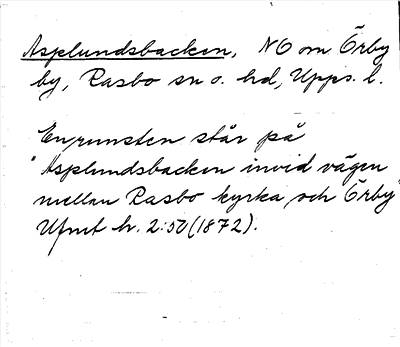 Asplundsbacken, NO om Örby
by, Rasbo sn o. hd, Upps. l.
En runsten står på
"Asplundsbacken invid vägen
mellan Rasbo kyrka och Örby"
Ufmt h. 2:50 (1872).